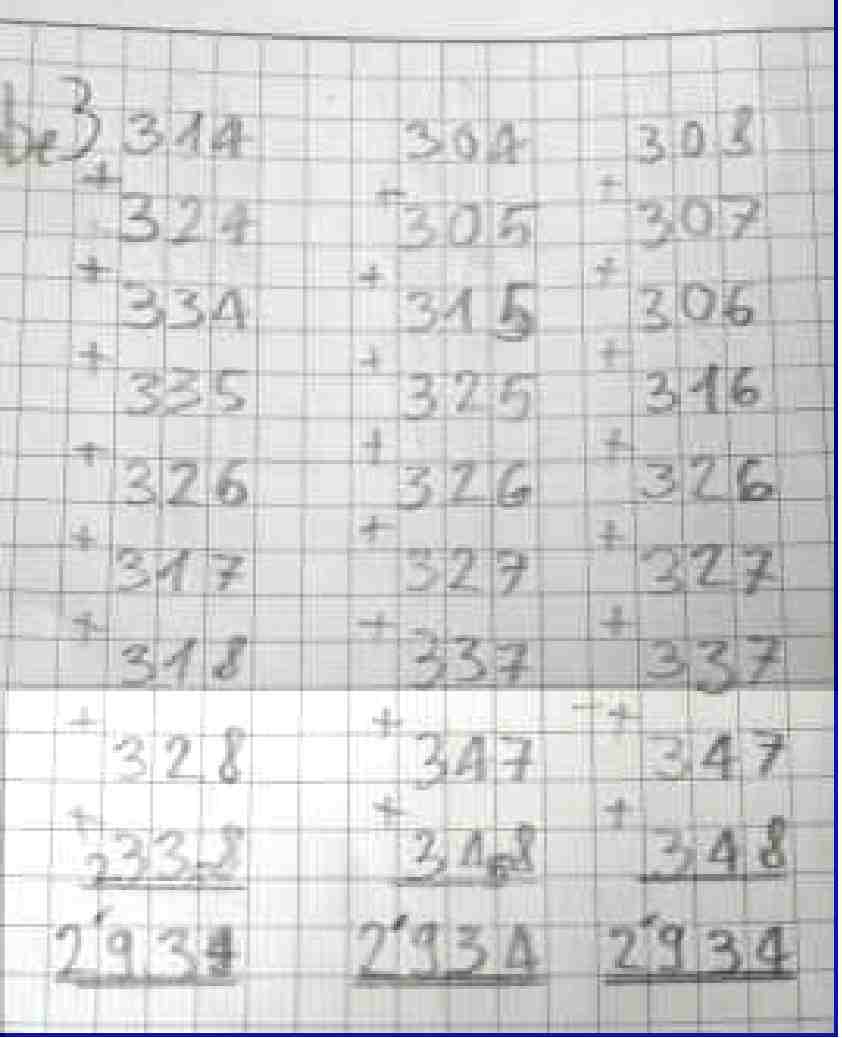 be) 314 304 308
+ 324 + 305 + 307
+ 334 + 315 + 306
+ 335 + 325 + 316
+ 326 + 326 + 326
+ 317 + 327 + 327
+ 318 + 337 + 337
+ 328 + 347 + 347
+ 338 + 348 + 348
2'934 2'934 2'934